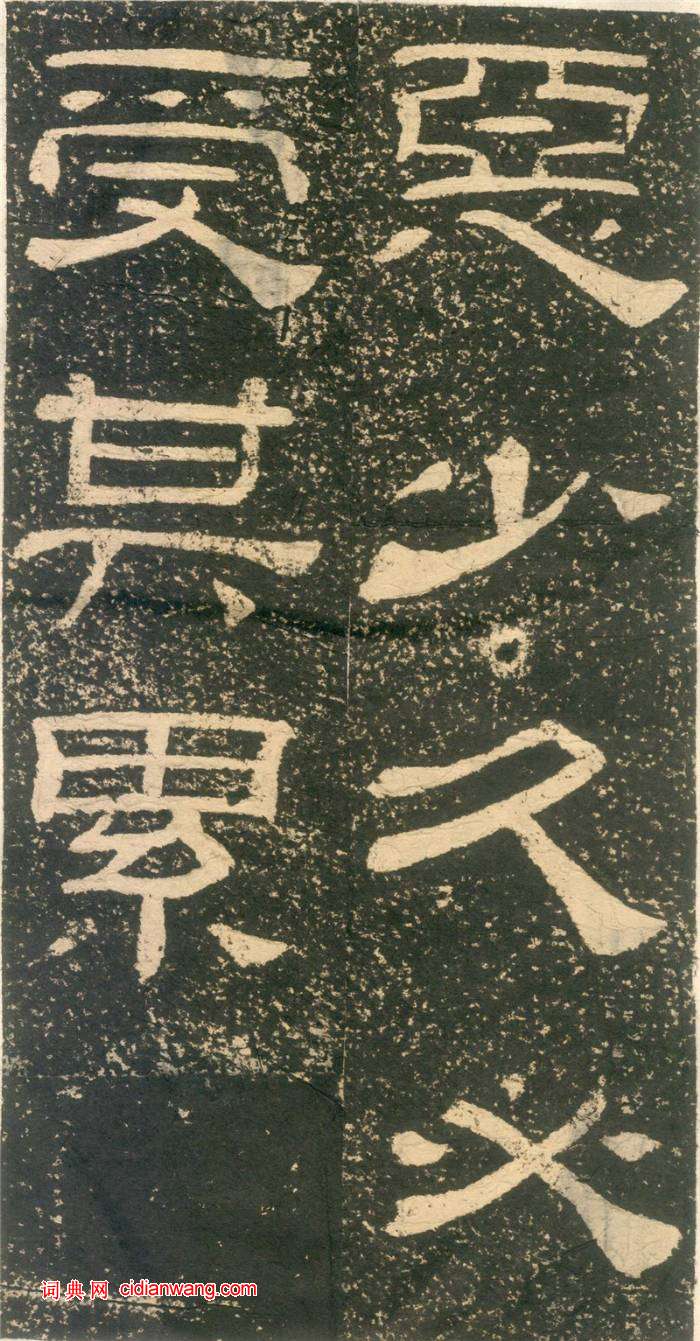 惡少久必
受其累
词典网 cidianwang.com